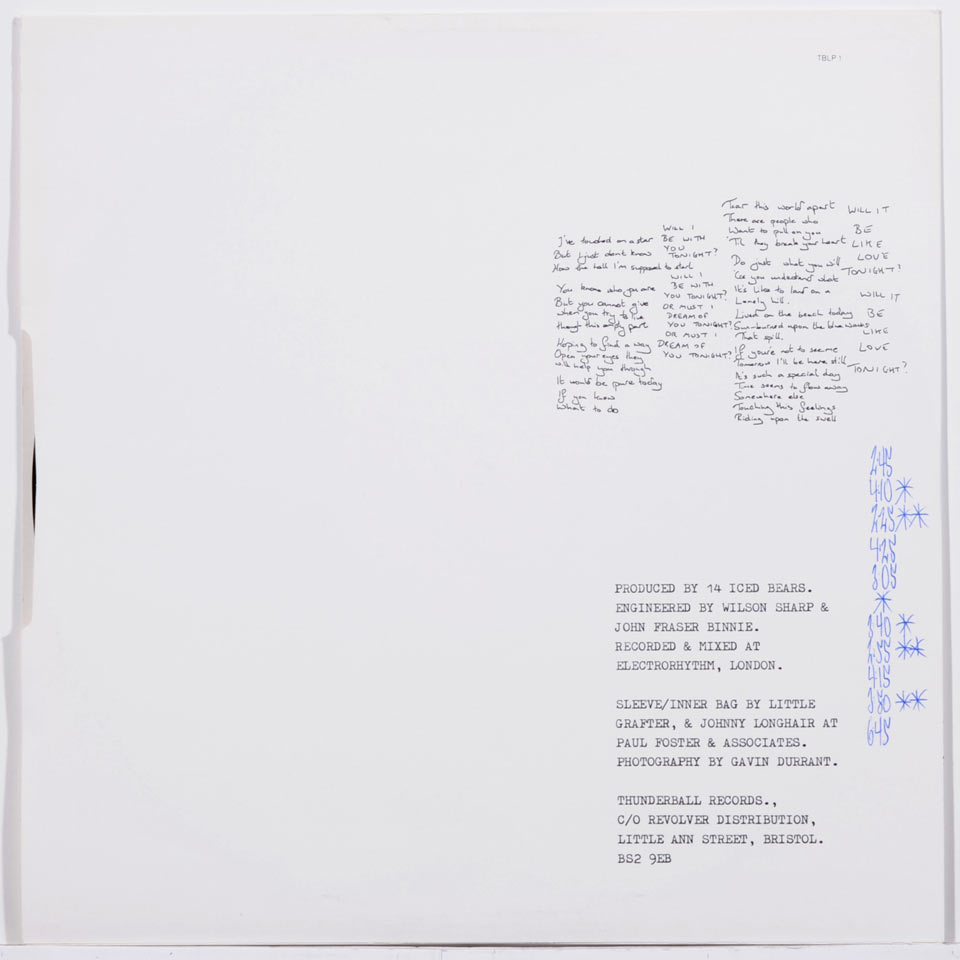 TBLP 1
I've touched on a star
But I just don't know
How the hell I'm supposed to start
You know who you are
But you cannot give
when you try to live
though this empty part
Hoping to find a way
Open your eyes they
will help you through
It would be pure today
If you know
What to do
WILL I
BE WITH
YOU
TONIGHT?
WILL I
BE WITH
YOU TONIGHT?
OR MUST I
DREAM OF
YOU TONIGHT?
OR MUST I
DREAM OF
YOU TONIGHT?
Tear this world apart
There are people who
Want to pull on you
'Til they break your heart
Do just what you will
'Cos you understand what
It's like to land on a
Lonely hill.
Lived on the beach today
Sun-burned upon the blue waves
That spill.
If you're not to see me
Tomorrow I'll be here still
It's such a special day
Time seems to flow away
Somewhere else
Touching this feelings
Riding upon the swell
WILL IT
BE
LIKE
LOVE
TONIGHT?
WILL IT
BE
LIKE
LOVE
TONIGHT?
245
410 *
225 **
425
305
*
340 *
255 **
415
380 **
645
PRODUCED BY 14 ICED BEARS.
ENGINEERED BY WILSON SHARP &
JOHN FRASER BINNIE.
RECORDED & MIXED AT
ELECTRORHYTHM, LONDON.
SLEEVE/INNER BAG BY LITTLE
GRAFTER, & JOHNNY LONGHAIR AT
PAUL FOSTER & ASSOCIATES.
PHOTOGRAPHY BY GAVIN DURRANT.
THUNDERBALL RECORDS.,
C/O REVOLVER DISTRIBUTION,
LITTLE ANN STREET, BRISTOL.
BS2 9EB